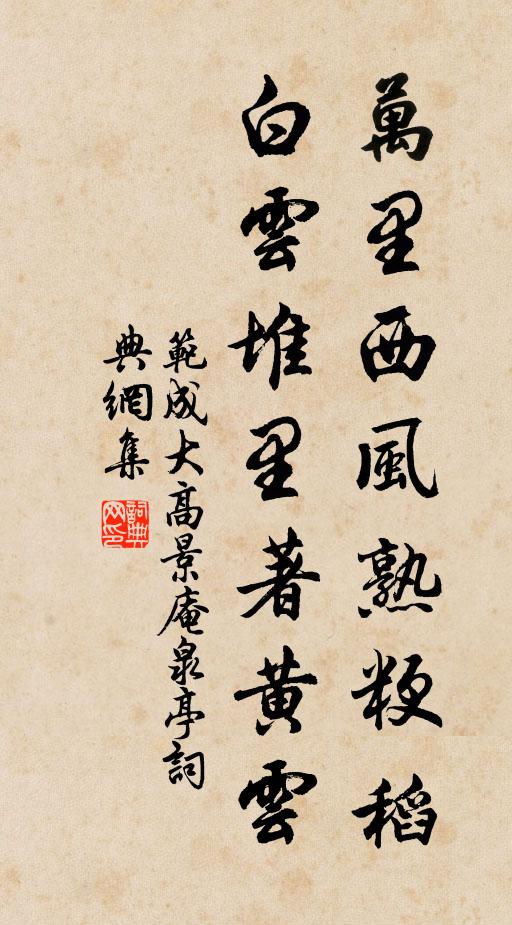 萬里西風熟粳稻
白雲堆里著黃雲
範成大高景庵泉亭詞
典網集
詞典網印